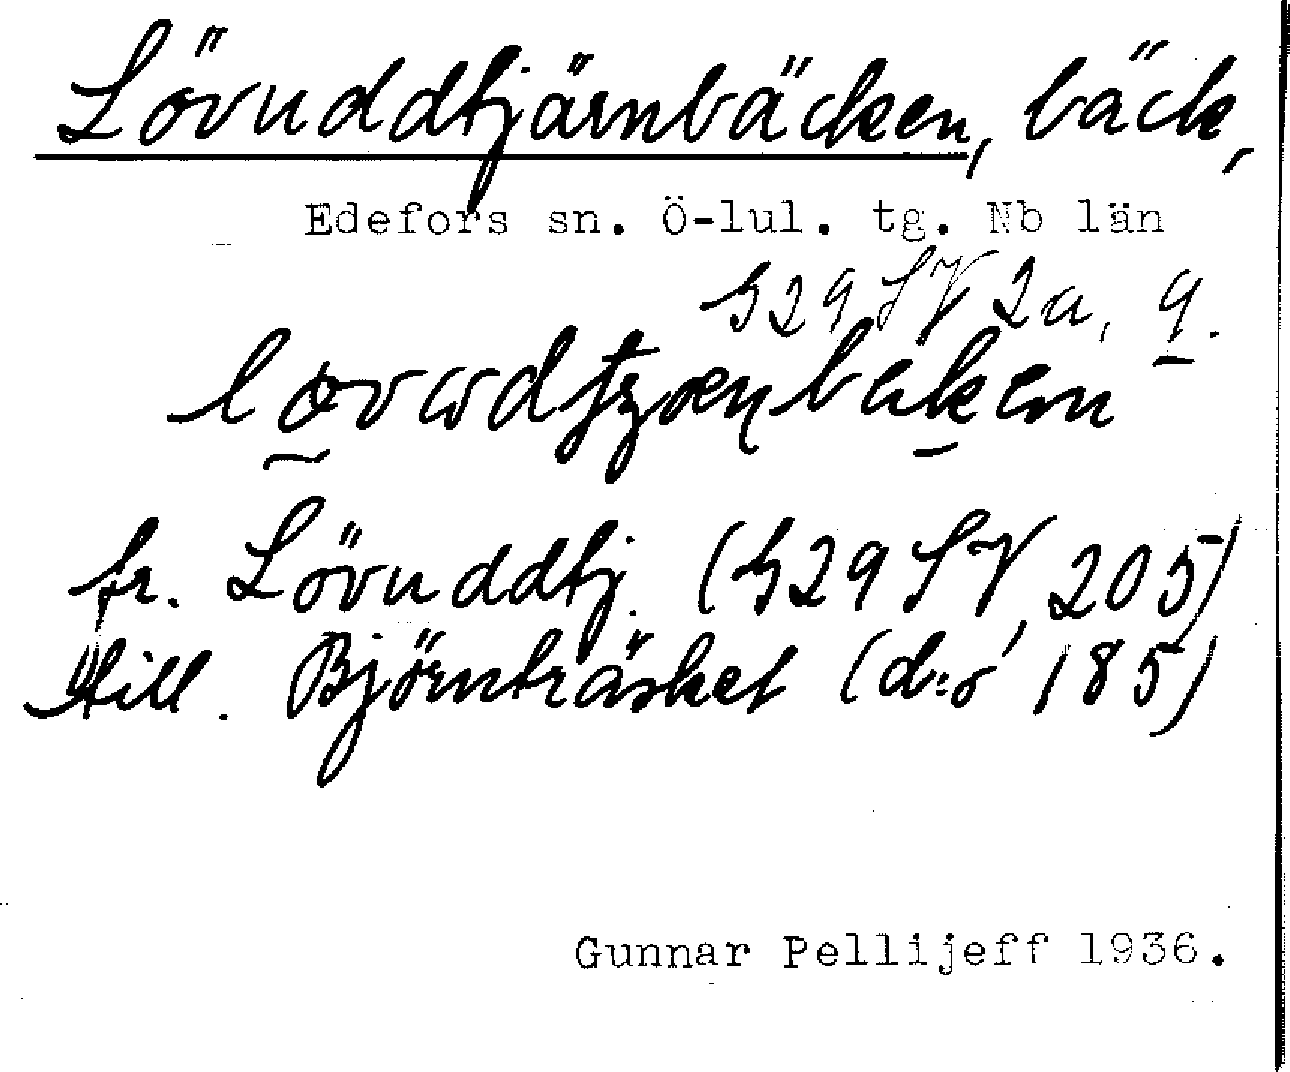 Lövuddtjärnbäcken, bäck,
Edefors sn. Ö-lul. tg. Nb län
S29 SV 2a, 9.
fr. Lövuddtj. (S29 SV, 205)
till. Björnträsket (d:o 185)
Gunnar Pellijeff 1936.